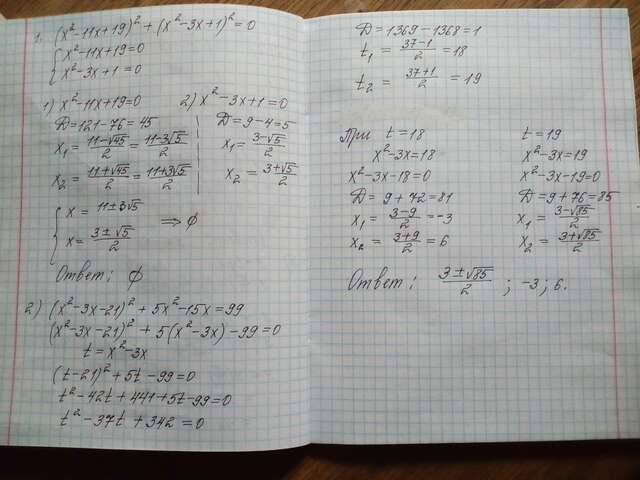 1. (x²-11x+19)² + (x²-3x+1)² = 0
{ x²-11x+19=0
x²-3x+1=0
1) x²-11x+19=0
D=121-76=45
x₁ = (11-√45)/2 = (11-3√5)/2
x₂ = (11+√45)/2 = (11+3√5)/2
2) x²-3x+1=0
D=9-4=5
x₁ = (3-√5)/2
x₂ = (3+√5)/2
{ x = 11±3√5
x = (3±√5)/2
⇒ ∅
Ответ: ∅
2) (x²-3x-21)² + 5x²-15x=99
(x²-3x-21)² + 5(x²-3x)-99=0
t=x²-3x
(t-21)²+5t-99=0
t²-42t+441+5t-99=0
t²-37t+342=0
D=1369-1368=1
t₁ = (37-1)/2 = 18
t₂ = (37+1)/2 = 19
При t=18
x²-3x=18
x²-3x-18=0
D=9+72=81
x₁ = (3-9)/2 = -3
x₂ = (3+9)/2 = 6
t=19
x²-3x=19
x²-3x-19=0
D=9+76=85
x₁ = (3-√85)/2
x₂ = (3+√85)/2
Ответ: (3±√85)/2 ; -3; 6.